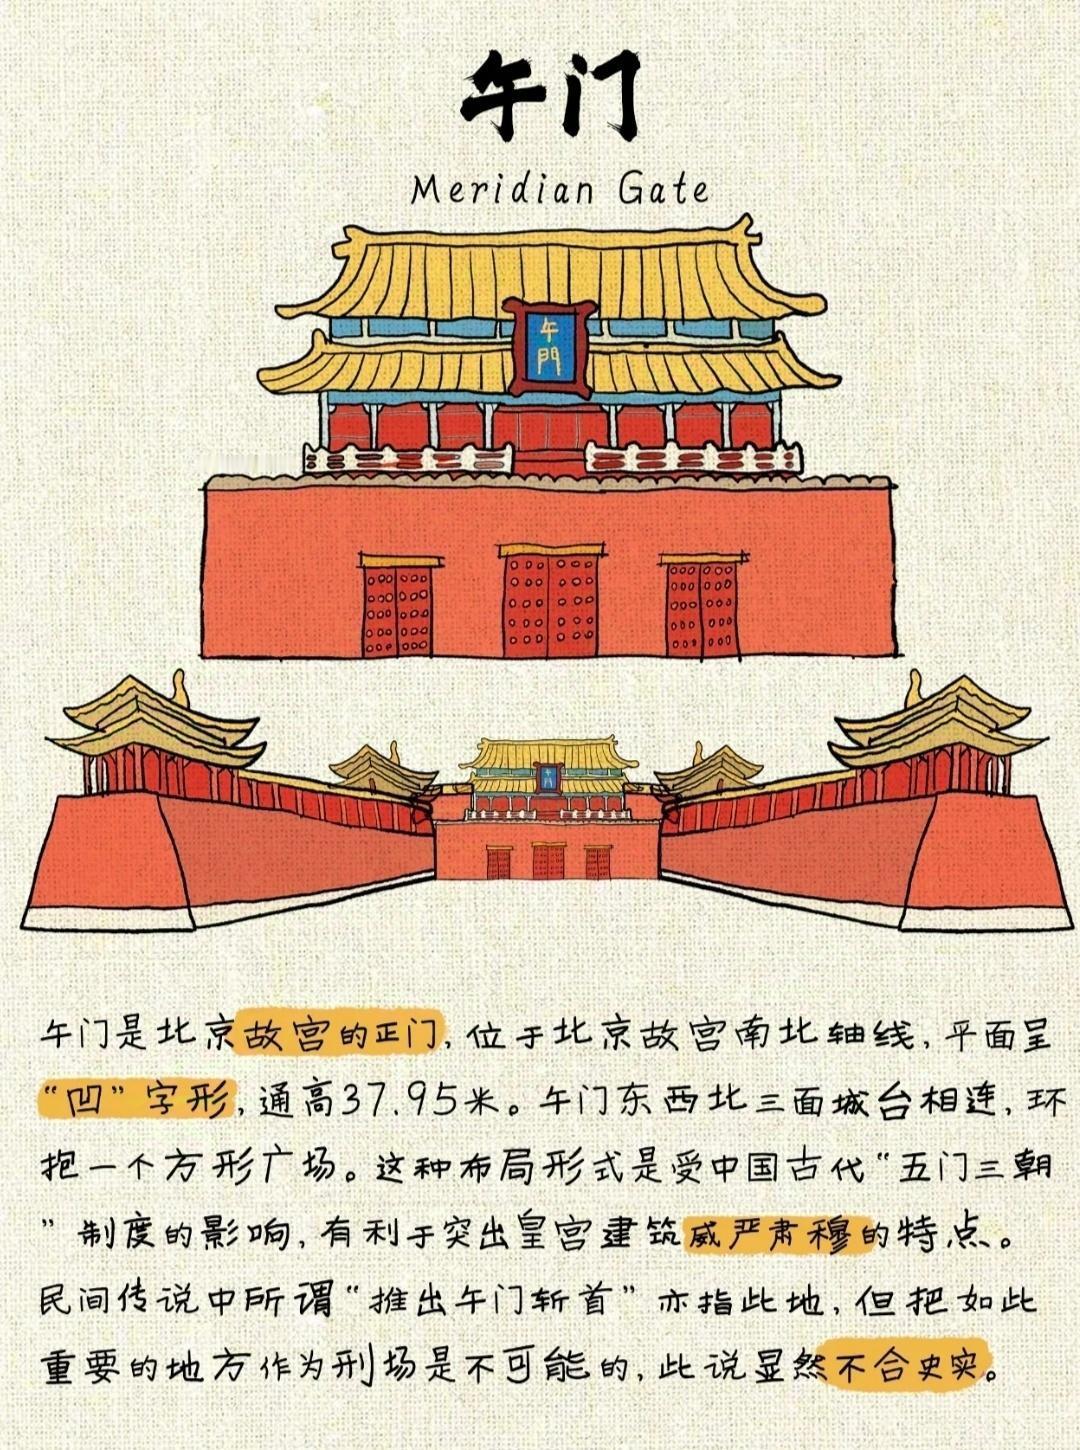 午门
Meridian Gate
午
門
午门是北京故宫的正门，位于北京故宫南北轴线，平面呈
“凹”字形，通高37.95米。午门东西北三面城台相连，环
抱一个方形广场。这种布局形式是受中国古代“五门三朝
”制度的影响，有利于突出皇宫建筑威严肃穆的特点。
民间传说中所谓“推出午门斩首”亦指此地，但把如此
重要的地方作为刑场是不可能的，此说显然不合史实。